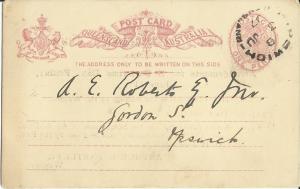 POST CARD
QUEENSLAND AUSTRALIA
THE ADDRESS ONLY TO BE WRITTEN ON THIS SIDE
A. E. Roberts G. Jnr.
Gordon St.
Ipswich.